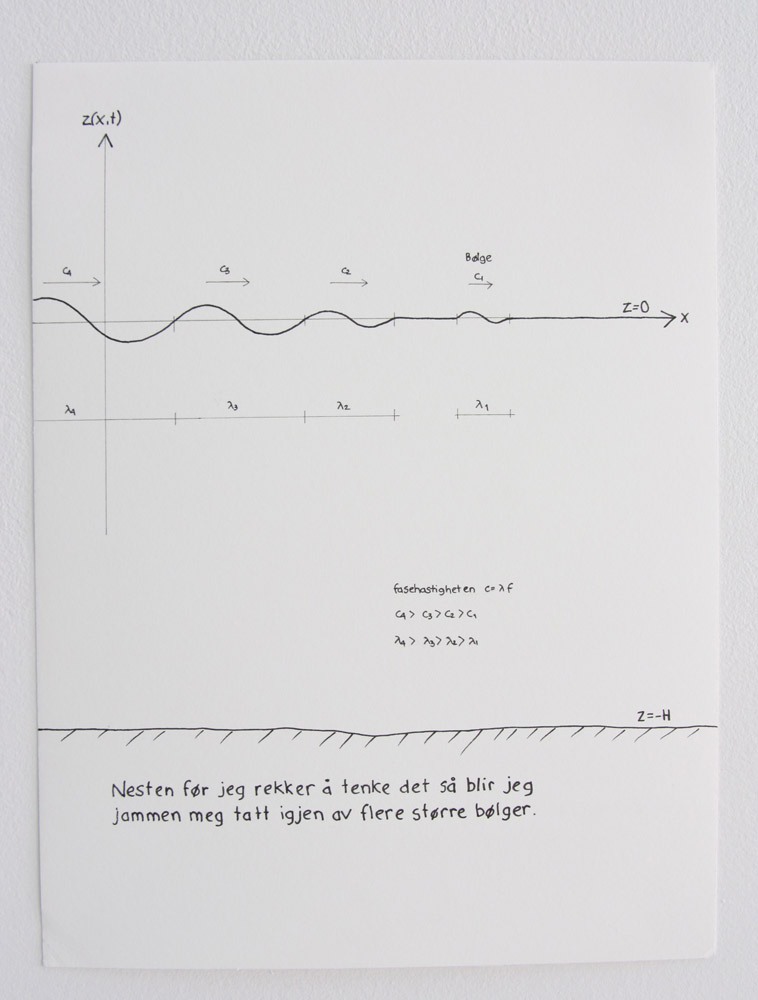 z(x,t)
c₄ c₃ c₂ Bølge
c₁
z=0 x
λ₄ λ₃ λ₂ λ₁
fasehastigheten c=λf
c₄> c₃>c₂>c₁
λ₄> λ₃>λ₂>λ₁
z=-H
Nesten før jeg rekker å tenke det så blir jeg
jammen meg tatt igjen av flere større bølger.